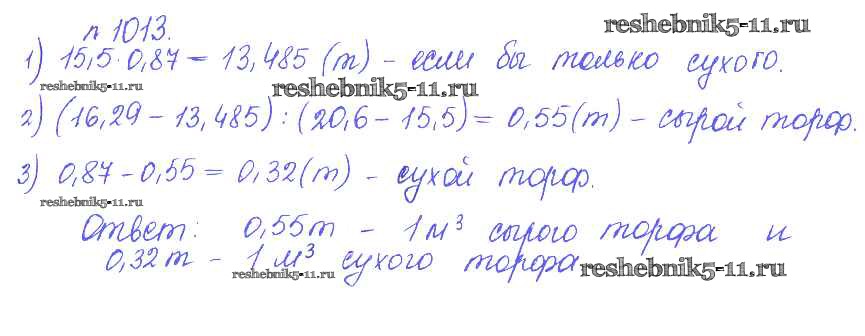 п 1013.
reshebnik5-11.ru
1) 15,5·0,87 = 13,485 (т) - если бы только сухого.
reshebnik5-11.ru reshebnik5-11.ru
2) (16,29 - 13,485) : (20,6 - 15,5) = 0,55 (т) - сырой торф.
3) 0,87 - 0,55 = 0,32 (т) - сухой торф.
reshebnik5-11.ru
Ответ: 0,55 т - 1 м³ сырого торфа и
0,32 т - 1 м³ сухого торфа
reshebnik5-11.ru reshebnik5-11.ru